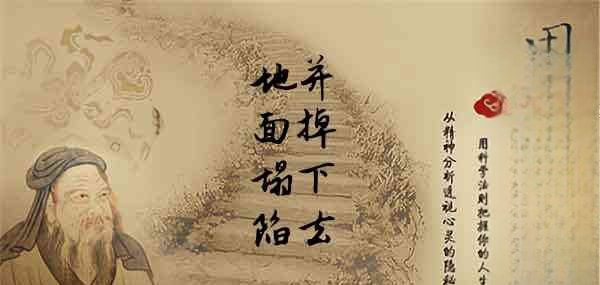 地面塌陷
并掉下去
从精神分析透视心灵的隐秘
用科学法则把握你的人生